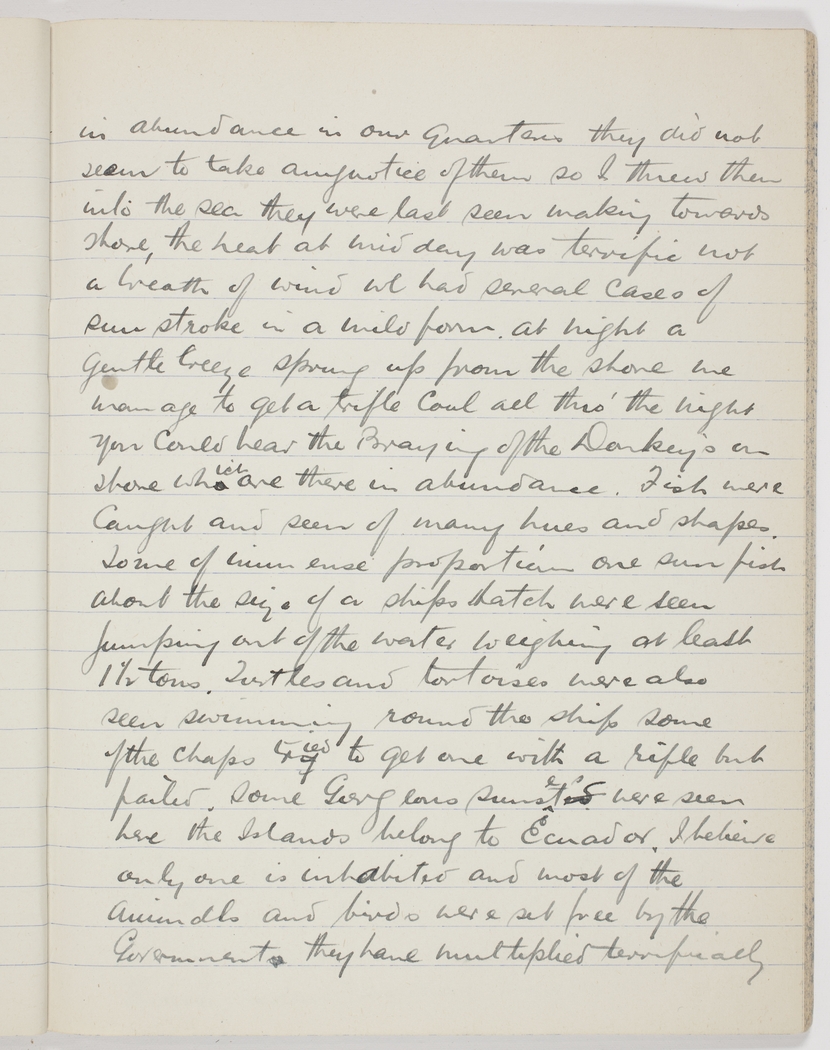 in abundance in our Quarters they did not
seem to take anynotice ofthem so I threw them
into the sea they were last seen making towards
shore, the heat at mid day was terrific not
a breath of wind we had several cases of
sun stroke in a mild form. at night a
gentle breeze sprung up from the shore we
manage to get a trifle cool all thro' the night
you could hear the Braying ofthe Donkey's on
shore which are there in abundance. Fish were
caught and seen of many hues and shapes.
Some of immense proportion one sun fish
about the size of a ships hatch were seen
jumping out ofthe water weighing at least
1½ tons. Turtles and tortoises were also
seen swimming round the ship some
ofthe chaps tried to get one with a rifle but
failed. Some Gorgeous sunsets were seen
here the Islands belong to Ecuador. I believe
only one is inhabited and most of the
animals and birds were set free by the
Government. they have multiplied terrifically